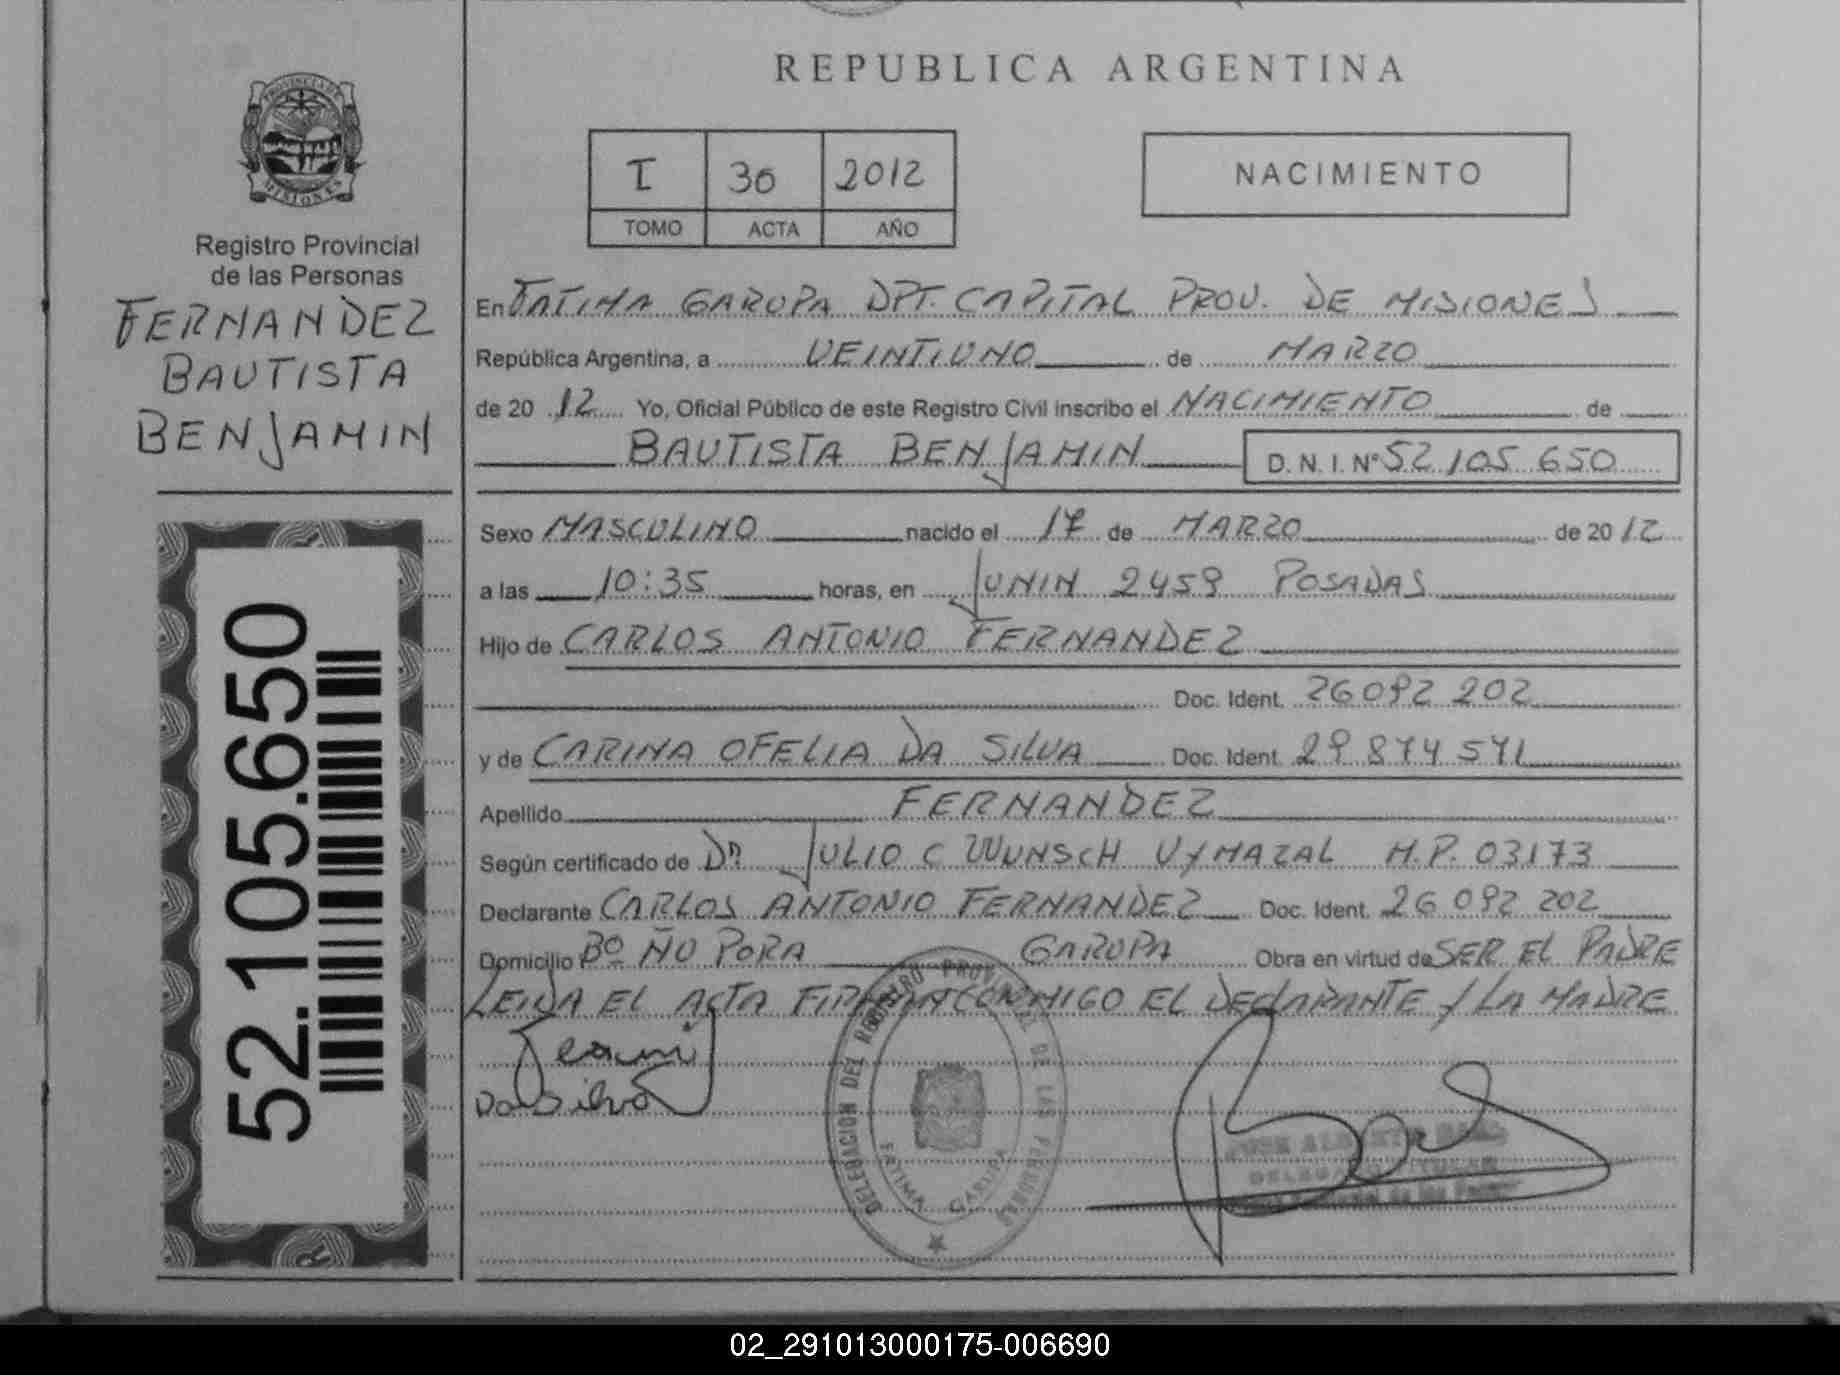 REPUBLICA ARGENTINA
PROVINCIA DE MISIONES
Registro Provincial
de las Personas
FERNANDEZ
BAUTISTA
BENJAMIN
52.105.650
I 30 2012
TOMO ACTA AÑO
NACIMIENTO
En FATIMA GARUPA DPT. CAPITAL PROV. DE MISIONES
República Argentina, a VEINTIUNO de MARZO
de 20 12 Yo, Oficial Público de este Registro Civil inscribo el NACIMIENTO de
BAUTISTA BENJAMIN D.N.I. Nº 52 105 650
Sexo MASCULINO nacido el 17 de MARZO de 20 12
a las 10:35 horas, en JUNIN 2459 POSADAS
Hijo de CARLOS ANTONIO FERNANDEZ
Doc. Ident. 26 092 202
y de CARINA OFELIA DA SILVA Doc. Ident. 29 874 571
Apellido FERNANDEZ
Según certificado de Dr. JULIO C WUNSCH UYMAZAL M.P. 03173
Declarante CARLOS ANTONIO FERNANDEZ Doc. Ident. 26 092 202
Domicilio Bº ÑU PORA GARUPA Obra en virtud de SER EL PADRE
LEIDA EL ACTA FIRMAN CONMIGO EL DECLARANTE Y LA MADRE
Da Silva
DELEGACION DEL REGISTRO PROVINCIAL DE LAS PERSONAS
FATIMA GARUPA
DELEGADO TITULAR
02_291013000175-006690